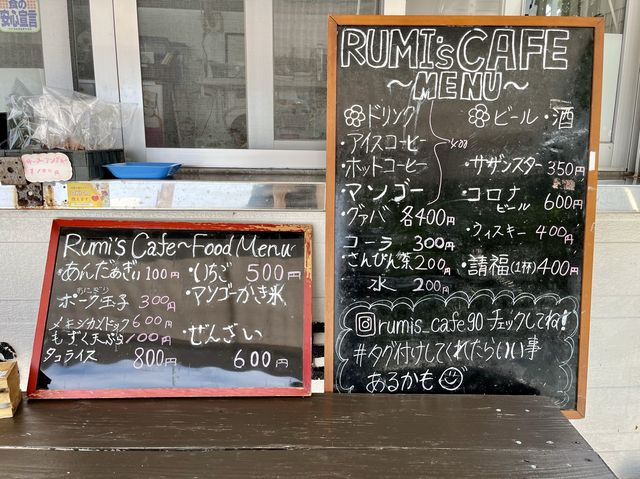 食の
安心宣言
RUMI'S CAFE
~MENU~
ドリンク
・アイスコーヒー
・ホットコーヒー
・マンゴー
・グァバ 各400円
コーラ 300円
・さんぴん茶 200円
氷 200円
ビール・酒
・サザンスター 350円
・コロナビール 600円
・ウィスキー 400円
・請福(1杯) 400円
rumis_cafe90 チェックしてね!
#タグ付けしてくれたらいい事
あるかも
Rumi's Cafe~Food Menu
・あんだぁぎぃ 100円
おにぎり
ポーク玉子 300円
メキシカンドック 600円
もずく天ぷら 100円
タコライス 800円
・いちご 500円
・マンゴーかき氷
・ぜんざい
600円